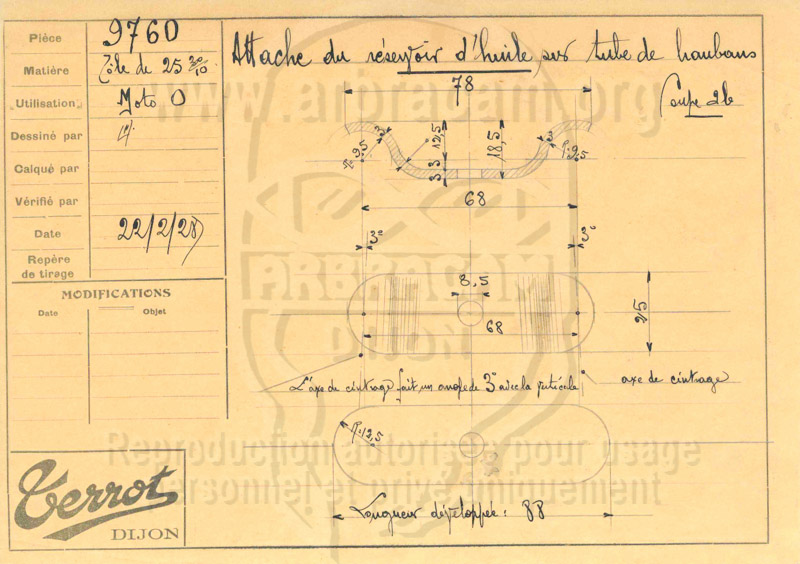 Pièce 9760
Matière Tôle de 25 30/10
Utilisation Moto O
Dessiné par
Calqué par
Vérifié par
Date 22/2/28
Repère
de tirage
MODIFICATIONS
Date Objet
Terrot
DIJON
Attache du réservoir d'huile, sur tube de haubans
Coupe ab
78
r=9,5 3 12,5 18,5 3 r=9,5
3 3
68
3° 3°
8,5
68
25
L'axe de cintrage fait un angle de 3° avec la verticale
axe de cintrage
R=12,5
Longueur développée : 88
www.arbracam.org
ARBRACAM
DIJON
Reproduction autorisée pour usage
personnel et privé uniquement